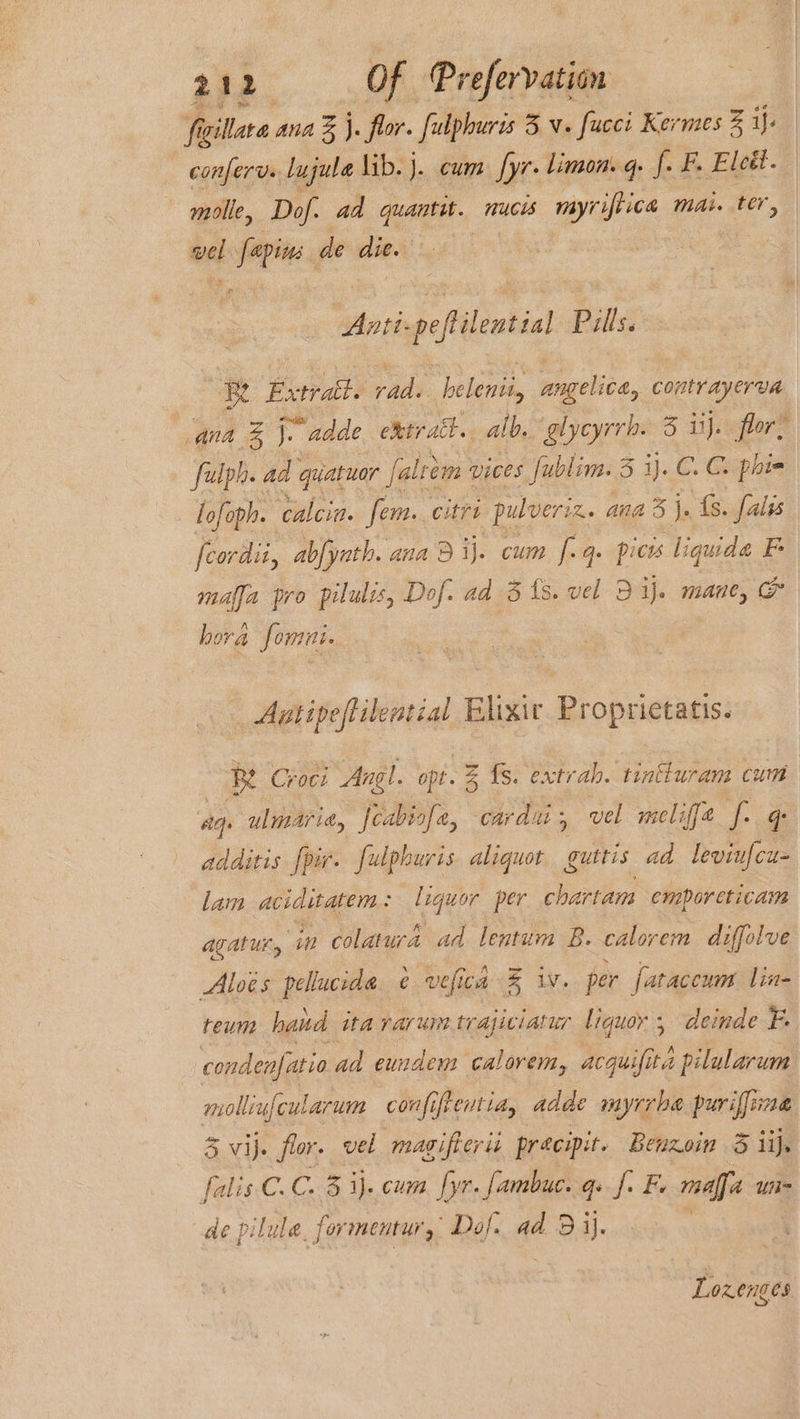 212 Of Preſervation
ſigillatæ ana ℥ j. flor. ſulphuris ʒ v. ſucci Kermes ℥ ij.
conſerv. lujulæ lib. j. cum ſyr. limon. q. ſ. F. Elect.
molle, Doſ. ad quantit. nucis myriſticæ mai. ter,
vel ſæpius de die.
Anti-peſtilential Pills.
℞ Extract. rad. helenii, angelicæ, contrayerva
ana ℥ j. adde extract. alb. glycyrrh. ʒ iij. flor.
ſulph. ad quatuor ſaltèm vices ſublim. ʒ ij. C. C. phi-
loſoph. calcin. ſem. citri pulveriz. ana ʒ j. ſs. ſalis
ſcordii, abſynth. ana ℈ ij. cum ſ. q. picis liquidæ F.
maſſa pro pilulis, Doſ. ad ʒ ſs. vel ℈ ij. mane, &
horâ ſomni.
Antipeſtilential Elixir Proprietatis.
℞ Croci Angl. opt. ℥ ſs. extrah. tincturam cum
aq. ulmariæ, ſcabioſæ, cardui, vel meliſſæ ſ. q.
additis ſpir. ſulphuris aliquot guttis ad leviuſcu-
lam aciditatem: liquor per chartam emporeticam
agatur, in colaturâ ad lentum B. calorem diſſolve
Aloës pellucidæ è veſicâ ℥ iv. per ſataceum lin-
teum haud ita rarum trajiciatur liquor; deinde F.
condenſatio ad eundem calorem, acquiſitâ pilularum
molliuſcularum conſiſtentia, adde myrrhæ puriſſimæ
ʒ vij. flor. vel magiſterii præcipit. Benzoin ʒ iij.
ſalis C. C. ʒ ij. cum ſyr. ſambuc. q. ſ. F. maſſa un-
de pilulæ formentur, Doſ. ad ℈ ij.
Lozenges